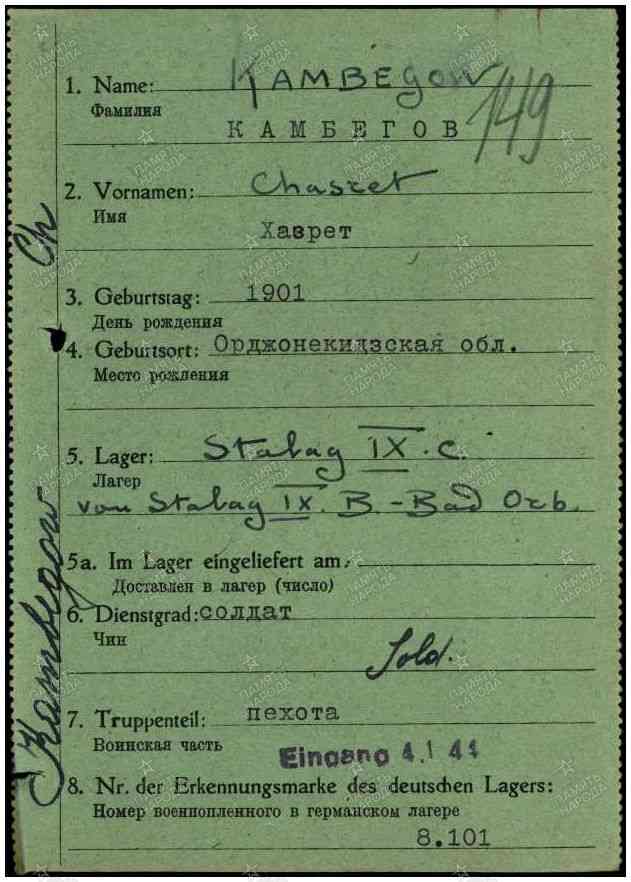 1. Name: KAMBEgow
Фамилия
КАМБЕГОВ
149
2. Vornamen: Chasret
Имя
Хазрет
3. Geburtstag: 1901
День рождения
4. Geburtsort: Орджонекидзская обл.
Место рождения
5. Lager: Stalag IX.C.
Лагер
von Stalag IX. B - Bad Orb.
5a. Im Lager eingeliefert am:
Доставлен в лагер (число)
6. Dienstgrad: солдат
Чин
Sold.
7. Truppenteil: пехота
Воинская часть
Eingang 4.1 44
8. Nr. der Erkennungsmarke des deutschen Lagers:
Номер военнопленного в германском лагере
8.101
Kambegow Ch
ПАМЯТЬ НАРОДА